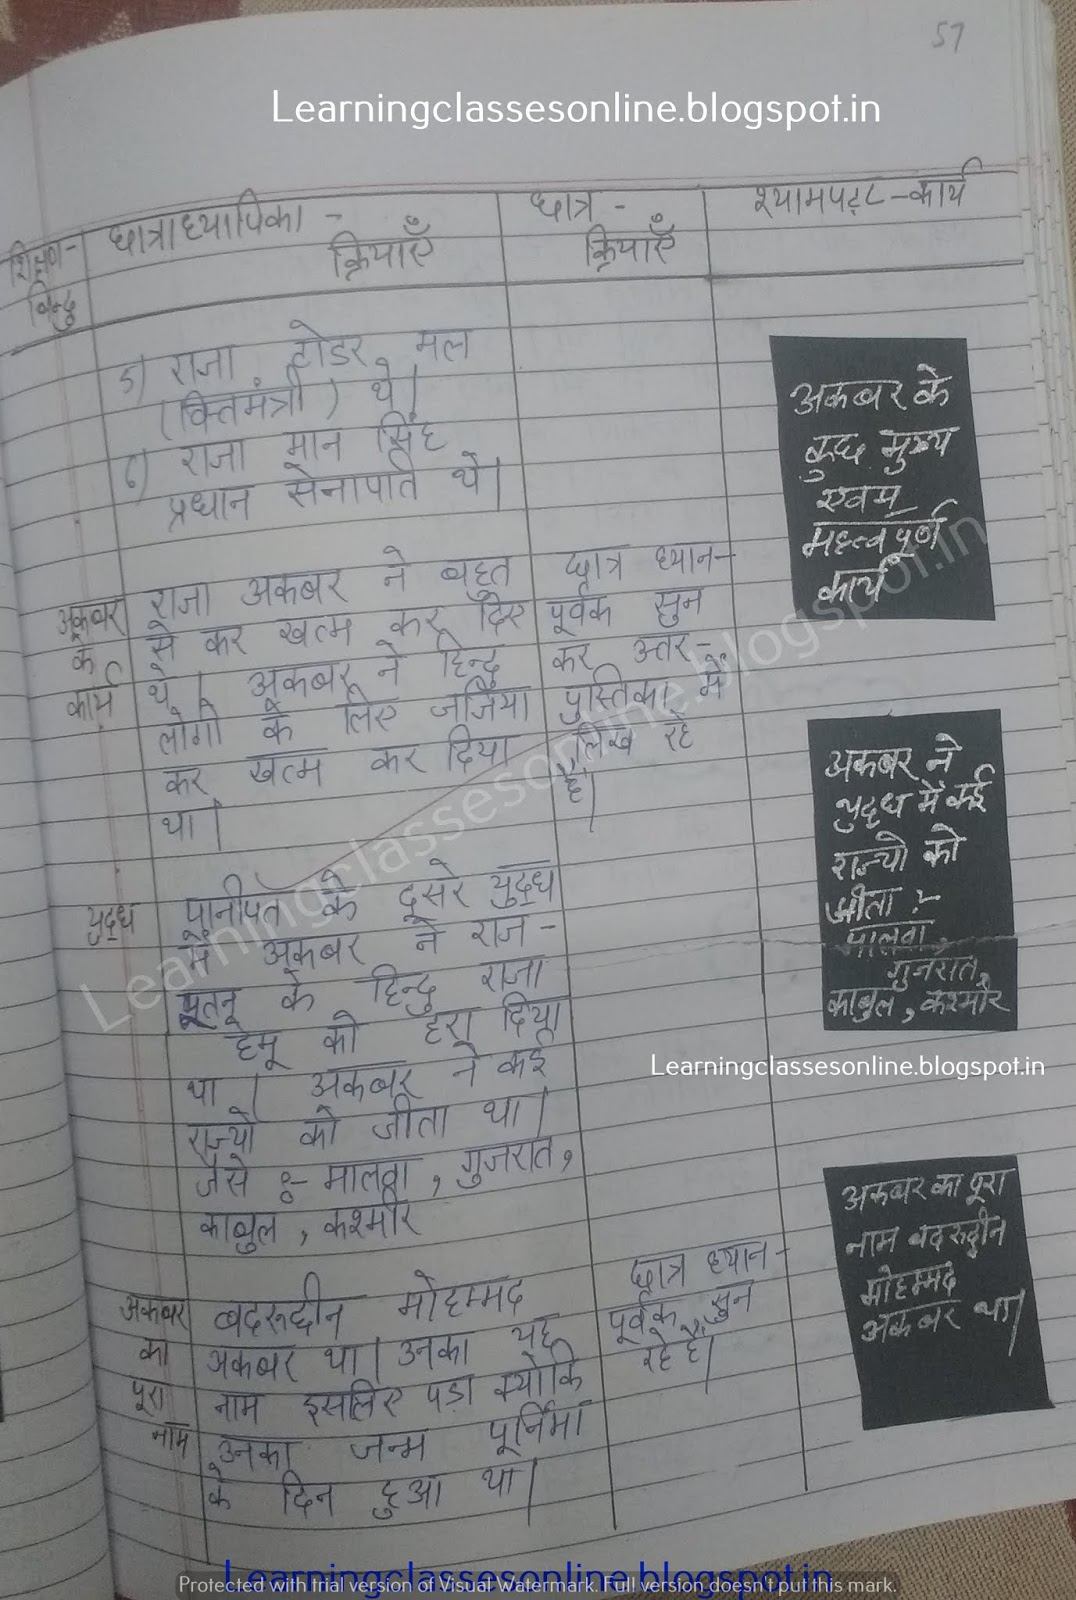 57
Learningclassesonline.blogspot.in
शिक्षण-
बिन्दु
छात्राध्यापिका -
क्रियाएँ
छात्र -
क्रियाएँ
श्यामपट्ट-कार्य
5) राजा टोडर मल
(वित्तमंत्री) थे।
6) राजा मान सिंह
प्रधान सेनापति थे।
अकबर के
कुछ मुख्य
एवम्
महत्वपूर्ण
कार्य
अकबर
के
कार्य
राजा अकबर ने बहुत
से कर खत्म कर दिए
थे। अकबर ने हिन्दु
लोगो के लिए जजिया
कर खत्म कर दिया
था।
छात्र ध्यान-
पूर्वक सुन
कर उत्तर-
पुस्तिका में
लिख रहे
है।
अकबर ने
युद्ध में कई
राज्यो को
जीता :-
मालवा,
गुजरात,
काबुल, कश्मीर
युद्ध
पानीपत के दूसरे युद्ध
में अकबर ने राज-
पूतनू के हिन्दु राजा
हेमू को हरा दिया
था। अकबर ने कई
राज्यो को जीता था।
जैसे :- मालवा, गुजरात,
काबुल, कश्मीर
Learningclassesonline.blogspot.in
Learningclassesonline.blogspot.in
अकबर
का
पूरा
नाम
बदरुद्दीन मोहम्मद
अकबर था। उनका यह
नाम इसलिए पड़ा क्योकि
उनका जन्म पूर्निमा
के दिन हुआ था।
छात्र ध्यान-
पूर्वक सुन
रहे है।
अकबर का पूरा
नाम बदरुद्दीन
मोहम्मद
अकबर था।
Learningclassesonline.blogspot.in
Protected with trial version of Visual Watermark. Full version doesn't put this mark.